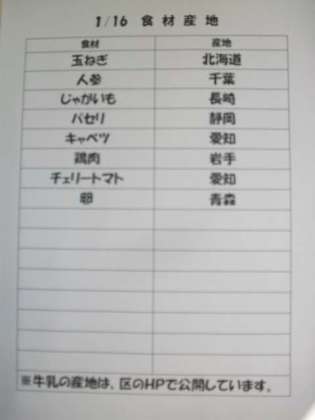 1/16 食材産地
食材 産地
玉ねぎ 北海道
人参 千葉
じゃがいも 長崎
パセリ 静岡
キャベツ 愛知
鶏肉 岩手
チェリートマト 愛知
卵 青森
※牛乳の産地は、区のHPで公開しています。